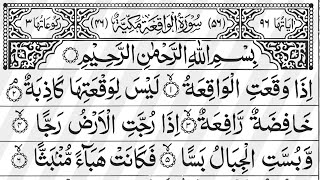 اٰیَاتُهَا ٩٦ (٥٦) سُوْرَةُ الْوَاقِعَةِ مَكِّیَّةٌ (٤٦) رُكُوْعَاتُهَا ٣
بِسْمِ اللّٰهِ الرَّحْمٰنِ الرَّحِیْمِ
اِذَا وَقَعَتِ الْوَاقِعَةُ ۙ‏ ١ لَیْسَ لِوَقْعَتِهَا كَاذِبَةٌ ۘ‏ ٢
خَافِضَةٌ رَّافِعَةٌ ۙ‏ ٣ اِذَا رُجَّتِ الْاَرْضُ رَجًّا ۙ‏ ٤
وَّ بُسَّتِ الْجِبَالُ بَسًّا ۙ‏ ٥ فَكَانَتْ هَبَآءً مُّنْۢبَثًّا ۙ‏ ٦